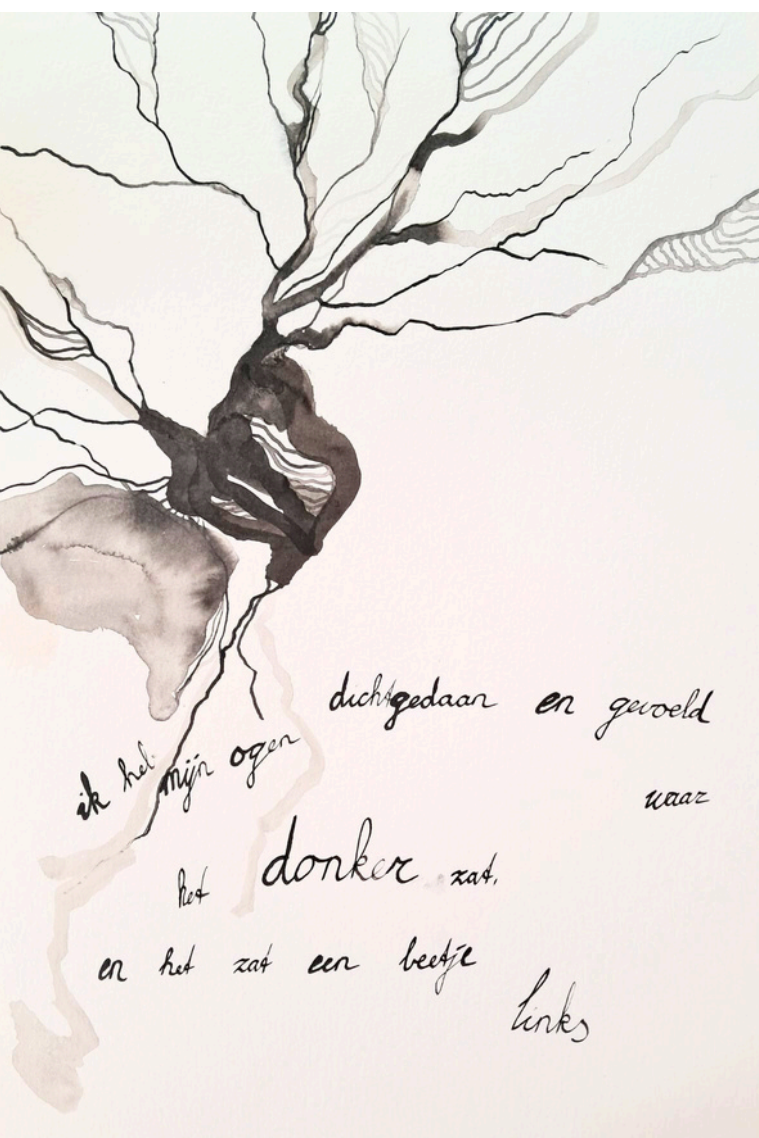 ik heb mijn ogen dichtgedaan en gevoeld
waar
het donker zat,
en het zat een beetje
links